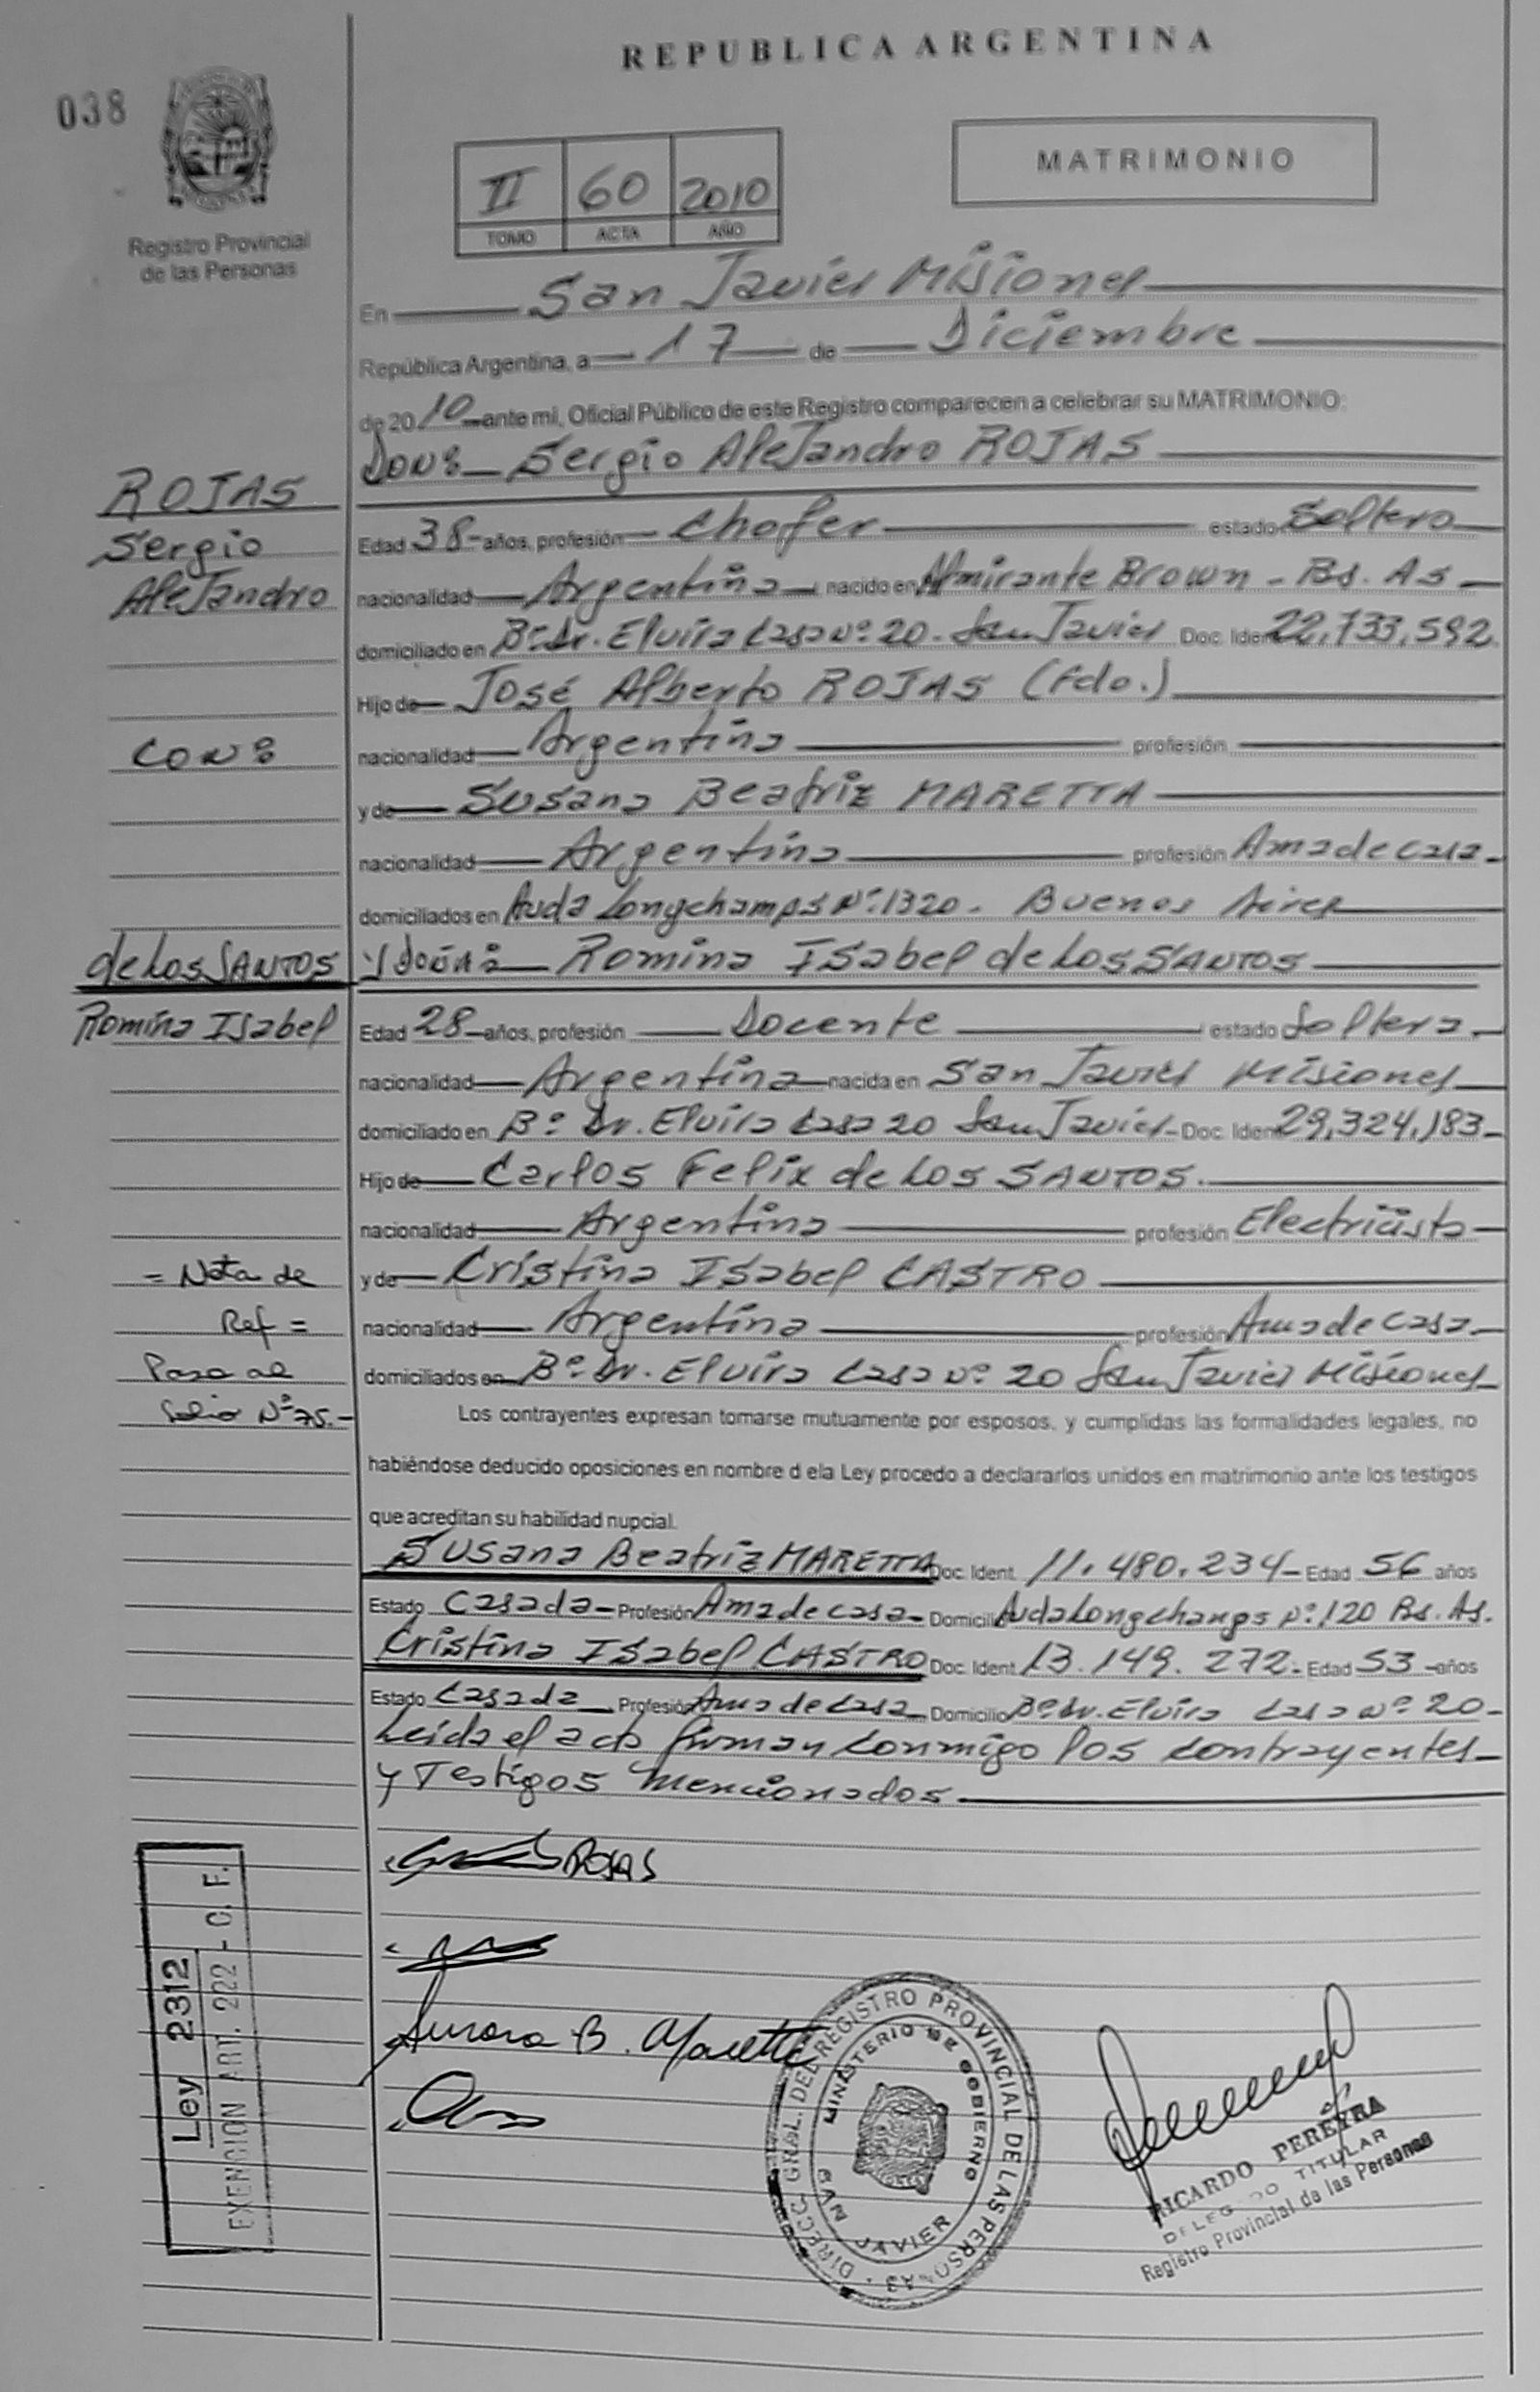 REPUBLICA ARGENTINA
038
MATRIMONIO
II 60 2010
TOMO ACTA AÑO
Registro Provincial
de las Personas
En San Javier Misiones
República Argentina, a 17 de Diciembre
de 2010 ante mi, Oficial Público de este Registro comparecen a celebrar su MATRIMONIO:
Don: Sergio Alejandro ROJAS
ROJAS
Sergio
Alejandro
Edad 38 años, profesión Chofer estado Soltero
nacionalidad Argentina nacido en Almirante Brown - Bs. As
domiciliado en Bº Dr. Elvira Casa Nº 20 - San Javier Doc. Iden 22.733.592
Hijo de José Alberto ROJAS (fdo.)
CON:
nacionalidad Argentina profesión
y de Susana Beatriz MARETTA
nacionalidad Argentina profesión Ama de casa
domiciliados en Avda Longchamps Nº 1320 - Buenos Aires
de Los SANTOS
Y DOÑA: Romina Isabel de Los SANTOS
Romina Isabel
Edad 28 años, profesión Docente estado Soltera
nacionalidad Argentina nacida en San Javier Misiones
domiciliado en Bº Dr. Elvira Casa 20 San Javier - Doc. Iden 29.324.183
Hijo de Carlos Felix de Los SANTOS.
nacionalidad Argentina profesión Electricista
= Nota de
Ref =
Pasa al
folio Nº 75.-
y de Cristina Isabel CASTRO
nacionalidad Argentina profesión Ama de casa
domiciliados en Bº Dr. Elvira Casa Nº 20 San Javier Misiones
Los contrayentes expresan tomarse mutuamente por esposos, y cumplidas las formalidades legales, no
habiéndose deducido oposiciones en nombre d ela Ley procedo a declararlos unidos en matrimonio ante los testigos
que acreditan su habilidad nupcial.
Susana Beatriz MARETTA Doc. Ident. 11.480.234 - Edad 56 años
Estado Casada - Profesión Ama de casa - Domicilio Avda Longchamps Nº 120 Bs. As.
Cristina Isabel CASTRO Doc. Ident. 13.149.272 - Edad 53 años
Estado Casada Profesión Ama de casa Domicilio Bº Dr. Elvira Casa Nº 20 -
Leida el acta firman conmigo los contrayentes
y Testigos mencionados
ROJAS
B. Maretta
Ley 2312
EXENCION ART. 222 - C. F.
DIRECC. GRAL. DEL REGISTRO PROVINCIAL DE LAS PERSONAS
MINISTERIO DE GOBIERNO
SAN JAVIER
RICARDO PEREYRA
TITULAR
Registro Provincial de las Personas